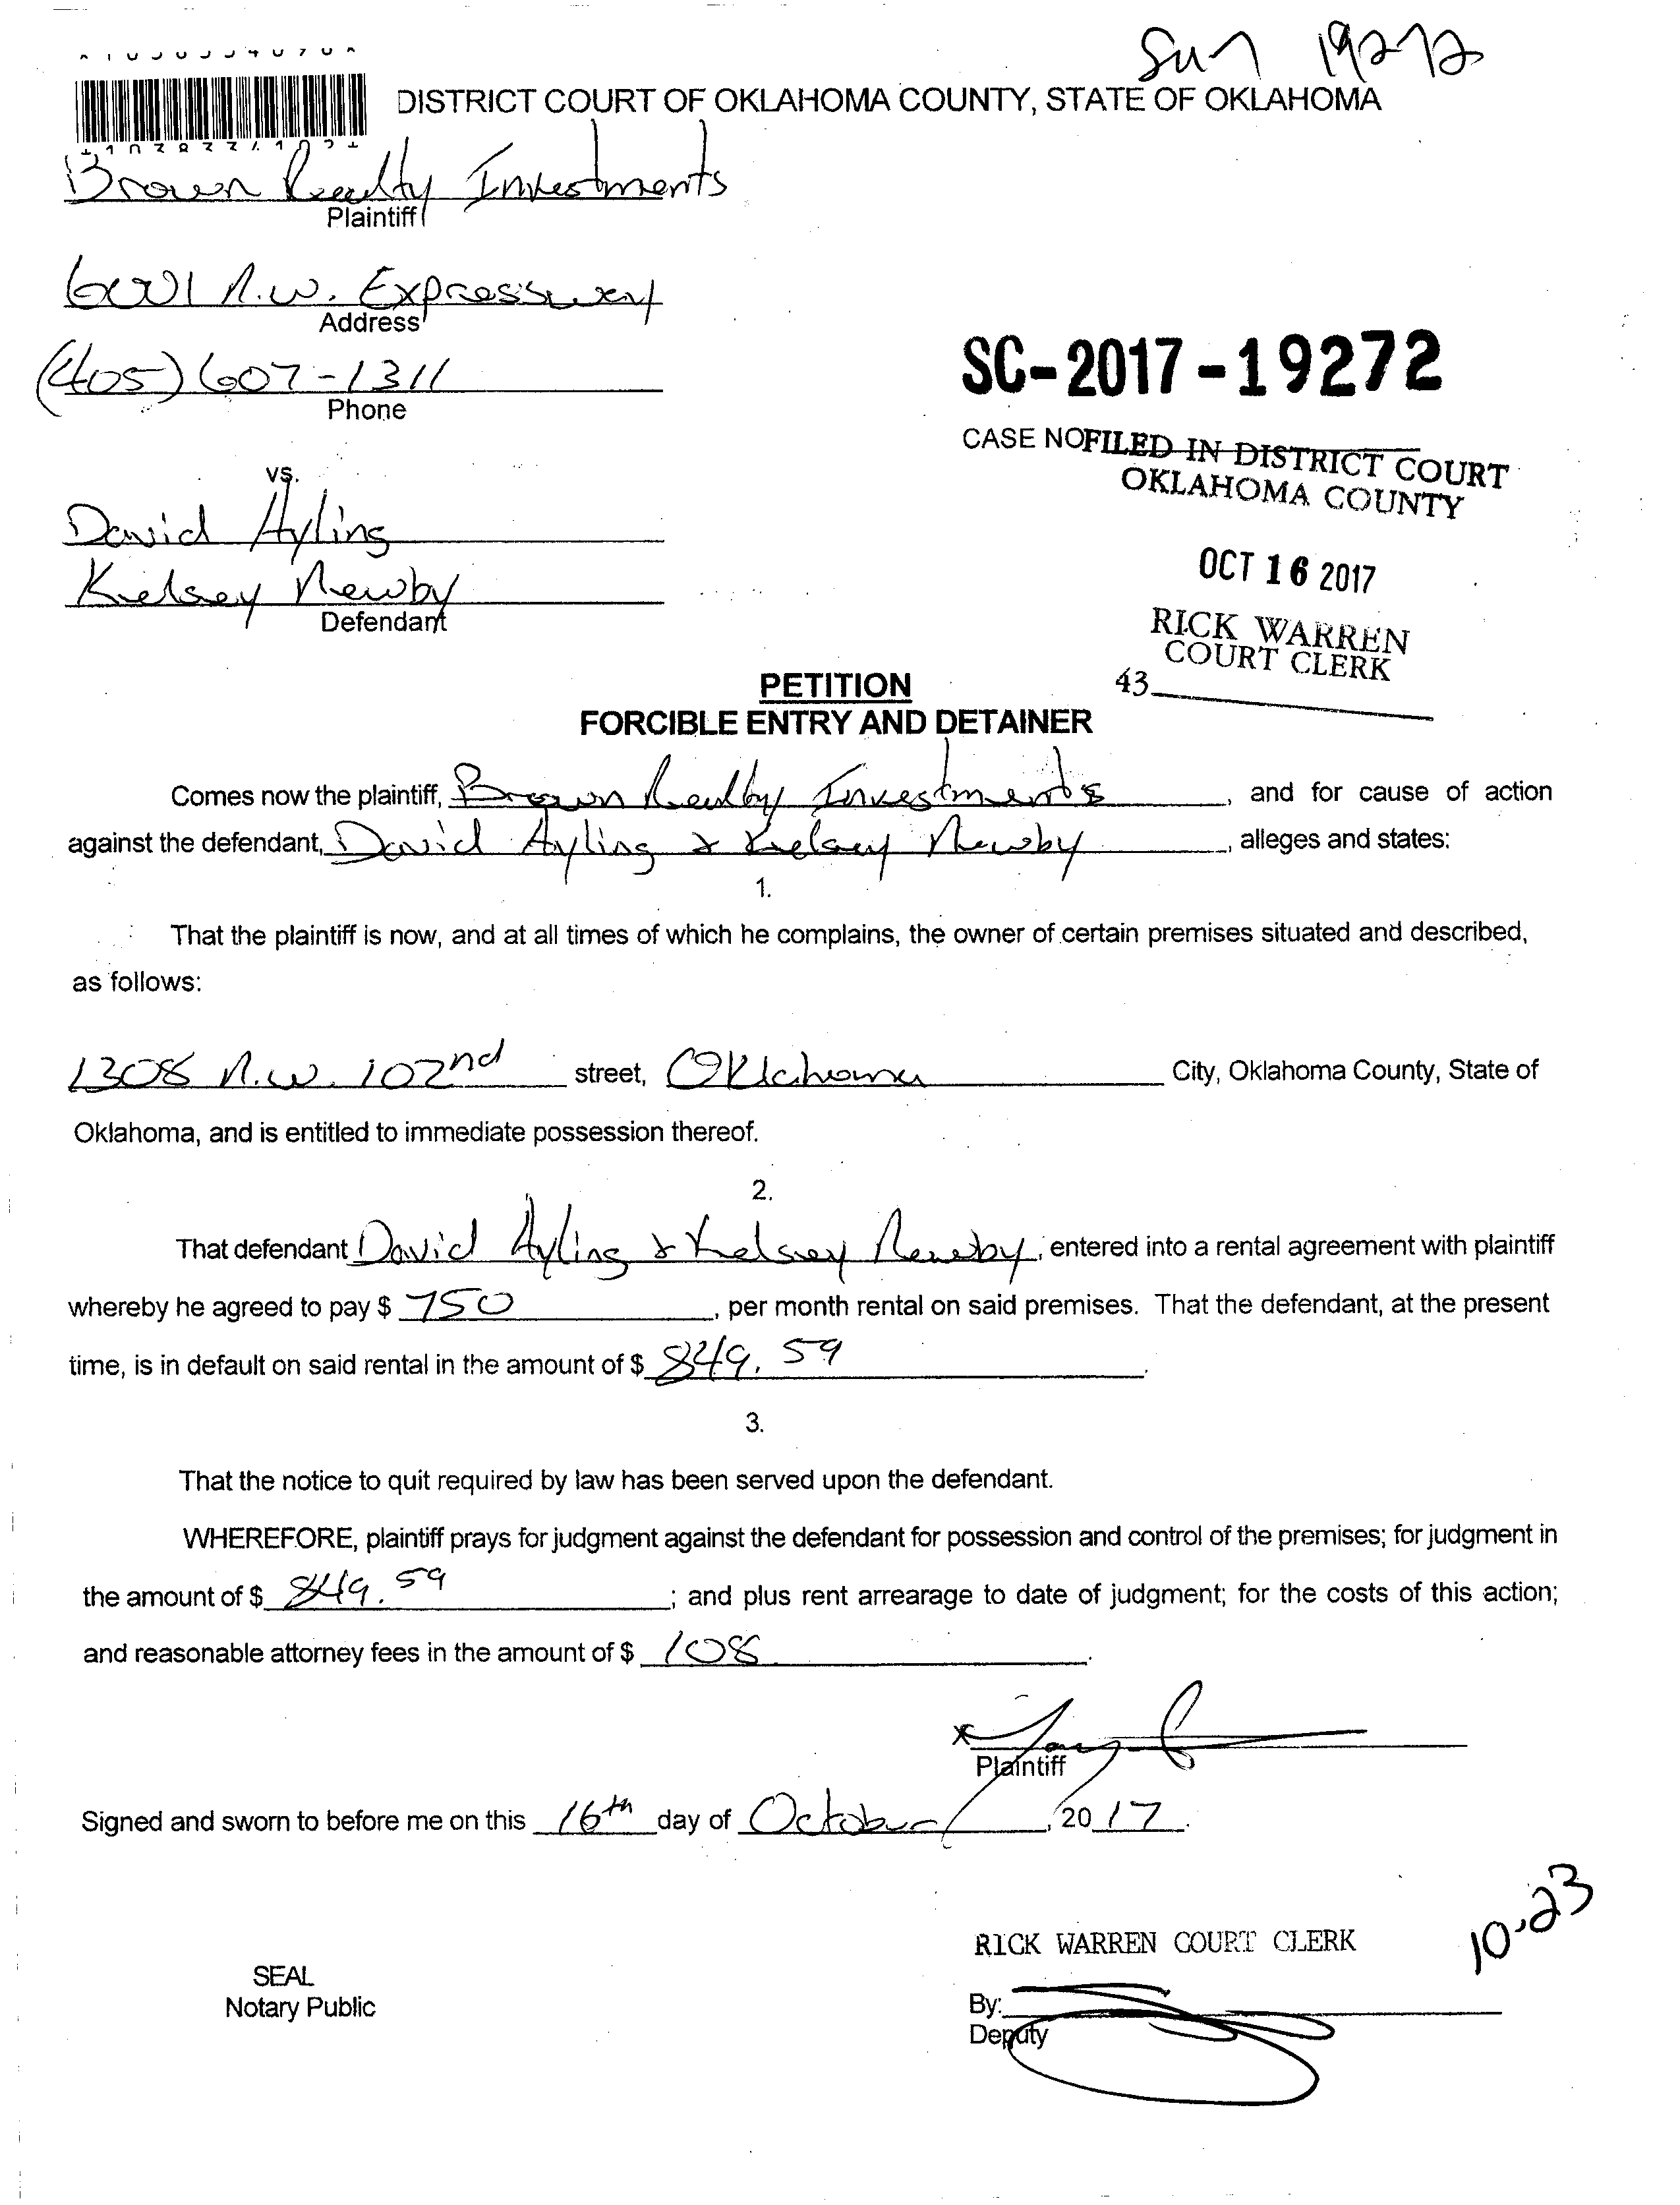 19272
DISTRICT COURT OF OKLAHOMA COUNTY, STATE OF OKLAHOMA
Brown Realty Investments
Plaintiff
6001 N.W. Expressway
Address
(405) 607-1311
Phone
SC-2017-19272
CASE NO
FILED IN DISTRICT COURT
OKLAHOMA COUNTY
vs.
David Ayling
OCT 16 2017
Kelsey Newby
Defendant
RICK WARREN
COURT CLERK
43
PETITION
FORCIBLE ENTRY AND DETAINER
Comes now the plaintiff, Brown Realty Investments, and for cause of action
against the defendant, David Ayling & Kelsey Newby, alleges and states:
1.
That the plaintiff is now, and at all times of which he complains, the owner of certain premises situated and described,
as follows:
1308 N.W. 102nd street, Oklahoma City, Oklahoma County, State of
Oklahoma, and is entitled to immediate possession thereof.
2.
That defendant David Ayling & Kelsey Newby, entered into a rental agreement with plaintiff
whereby he agreed to pay $ 750, per month rental on said premises. That the defendant, at the present
time, is in default on said rental in the amount of $ 849.59.
3.
That the notice to quit required by law has been served upon the defendant.
WHEREFORE, plaintiff prays for judgment against the defendant for possession and control of the premises; for judgment in
the amount of $ 849.59; and plus rent arrearage to date of judgment; for the costs of this action;
and reasonable attorney fees in the amount of $ 108.
Plaintiff
Signed and sworn to before me on this 16th day of October, 2017.
10-23
RICK WARREN COURT CLERK
SEAL
Notary Public
By:
Deputy